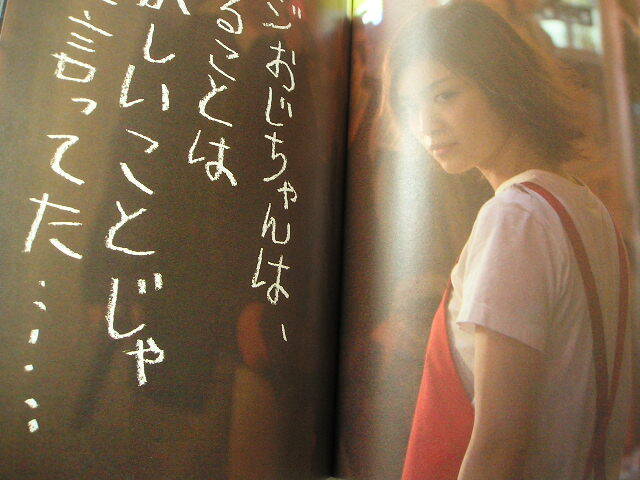 ごおじちゃんは、
ることは
しいことじゃ
言ってた……